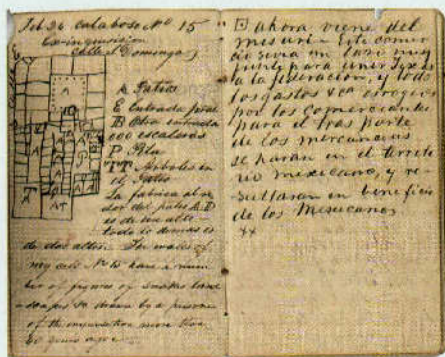 Feb 26 Calaboso No 15
Ex-inquisicion
Calle S Domingo
A Patios
E Entrada pral
B Otra entrada
000 escaleras
P Pila
Arboles in
el Patio
La fabrica al re
dedor del patio A. D
es de un alto
todo lo demas es
de dos altos. The walls of
my cell No 15 have a num
ber of figures of snakes land
scapes &c drawn by a prisoner
of the inquisition more than
60 years ago
ahora viene del
misuri. Este comer
cio seria un lazo muy
fuerte para unir Texas
a la federacion, y todo
los gastos &ca erogados
por los comerciantes
para el trasporte
de los mercancias
se haran en el territo
rio mexicano, y re-
sultaran en beneficio
de los Mexicanos
A
A
A
A